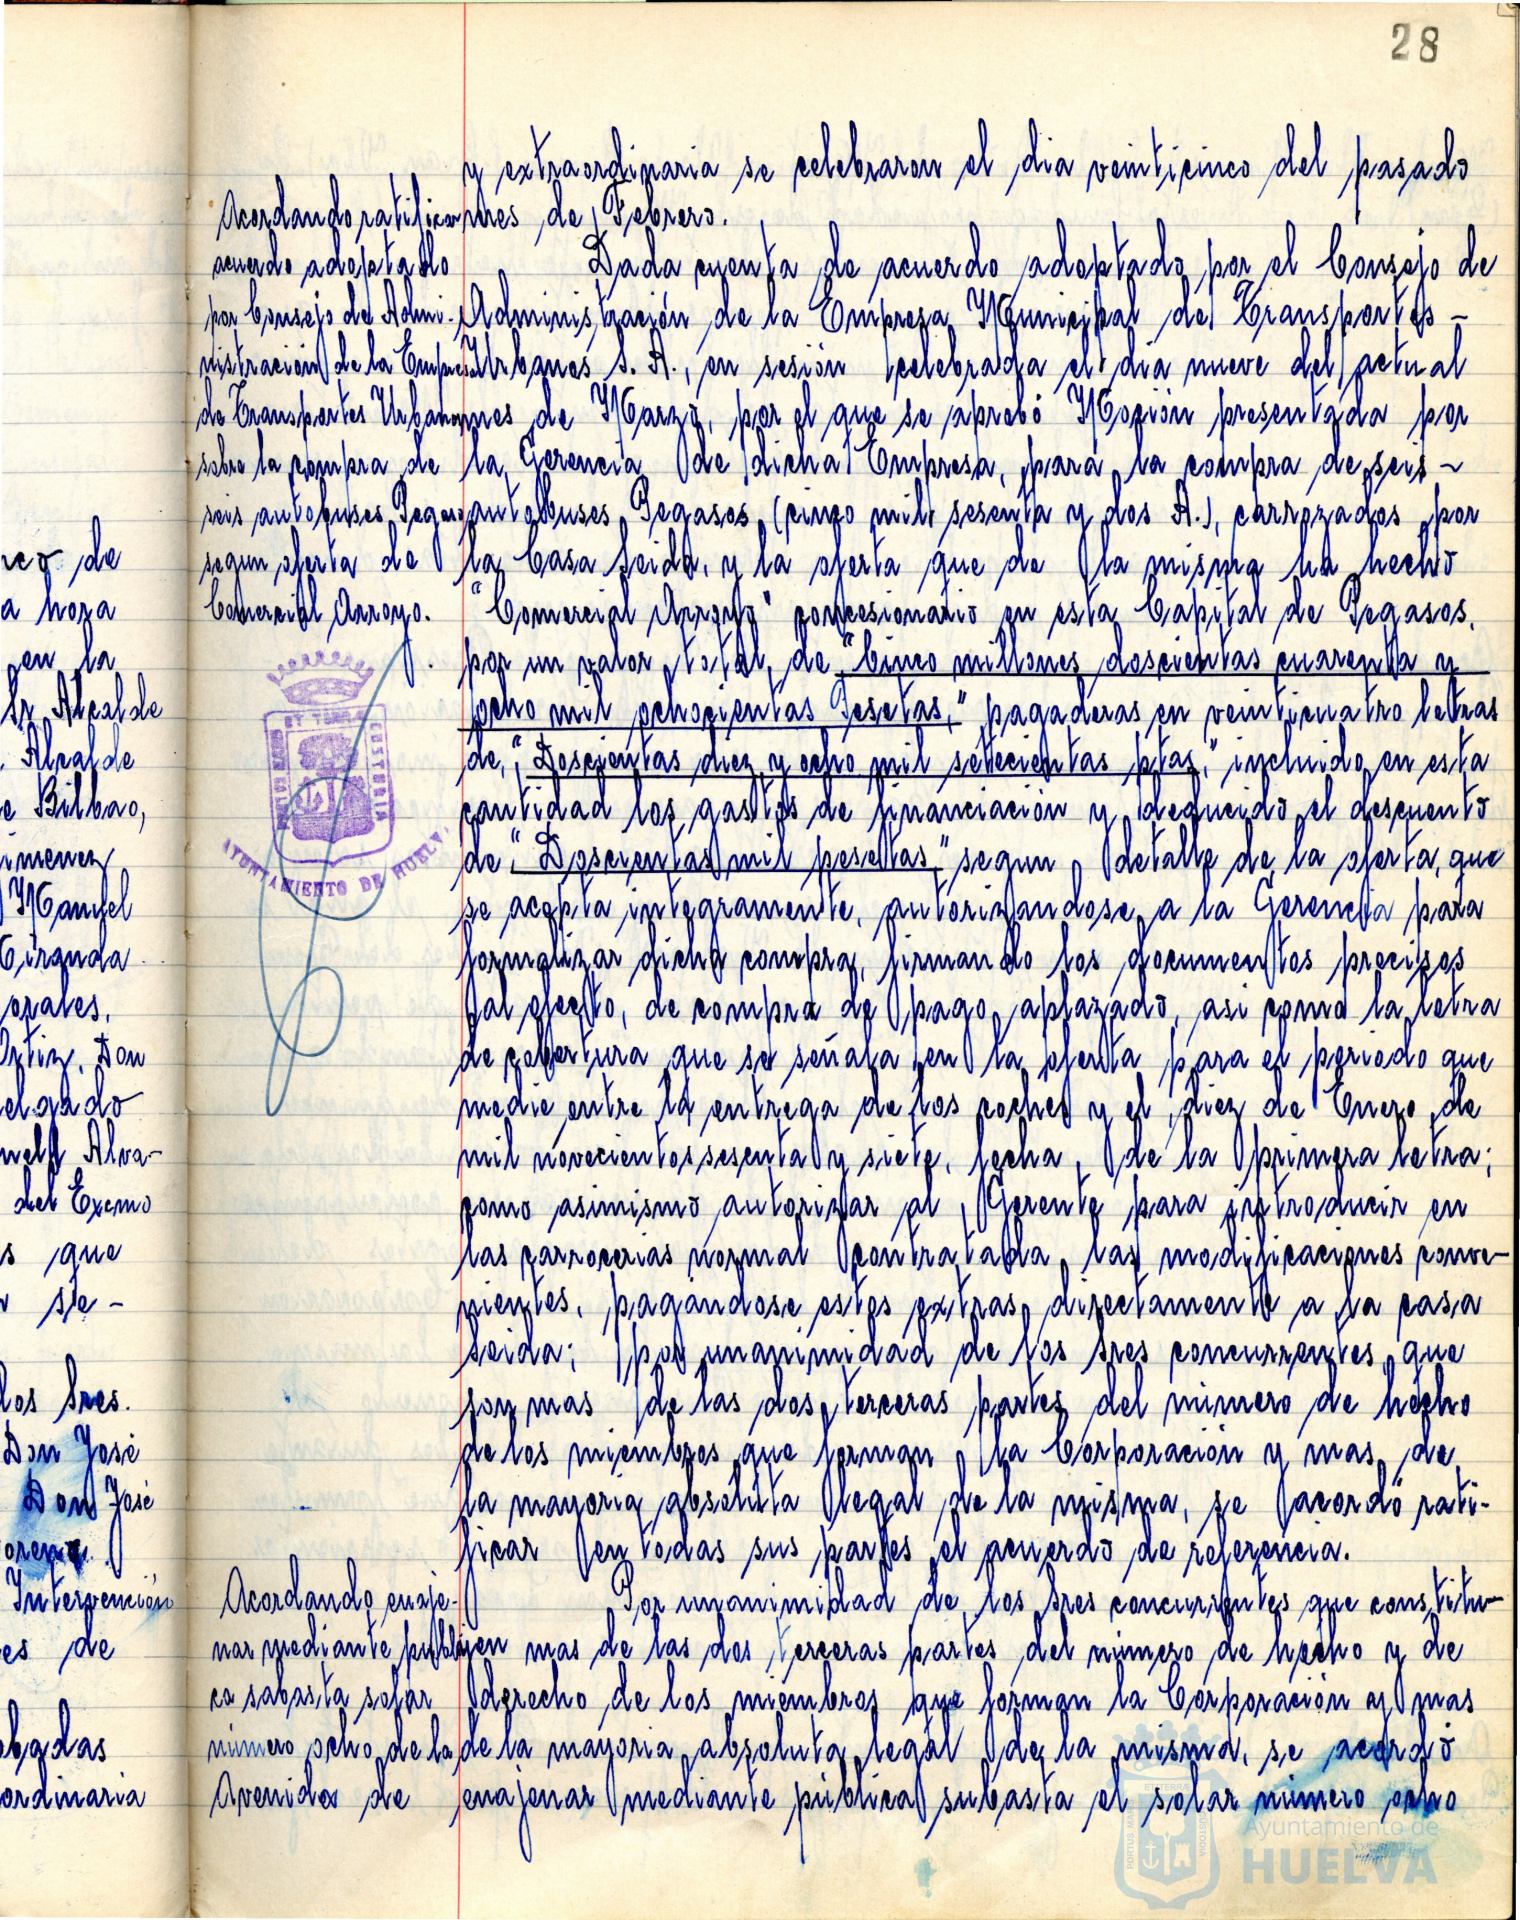 28
y extraordinaria se celebraron el dia veinticinco del pasado
mes de Febrero.
Acordando ratificar
acuerdo adoptado
por Consejo de Admi-
nistración de la Empresa
de Transportes Urbanos
sobre la compra de
seis autobuses Pegaso
segun oferta de
Comercial Arroyo.
Dada cuenta de acuerdo adoptado por el Consejo de
Administración de la Empresa Municipal de Transportes -
Urbanos S. A., en sesión celebrada el dia nueve del actual
mes de Marzo, por el que se aprobó Moción presentada por
la Gerencia de dicha Empresa, para la compra de seis -
autobuses Pegasos (cinco mil sesenta y dos A.), carrozados por
la Casa Seida, y la oferta que de la misma ha hecho
"Comercial Arroyo" concesionario en esta Capital de Pegasos,
por un valor total de "Cinco millones doscientas cuarenta y
ocho mil ochocientas Pesetas," pagaderas en veinticuatro letras
de, "Doscientas diez y ocho mil setecientas ptas," incluido en esta
cantidad los gastos de financiación y deducido el descuento
de "Doscientas mil pesetas" segun detalle de la oferta, que
se acepta integramente, autorizandose a la Gerencia para
formalizar dicha compra, firmando los documentos precisos
al efecto, de compra de pago aplazado, asi como la letra
de cobertura que se señala en la oferta para el periodo que
medie entre la entrega de los coches y el diez de Enero de
mil novecientos sesenta y siete, fecha de la primera letra;
como asimismo autorizar al Gerente para introducir en
las carrocerias normal contratada, las modificaciones conve-
nientes, pagandose estos extras directamente a la casa
Seida; por unanimidad de los Sres concurrentes que
son mas de las dos terceras partes del número de hecho
de los miembros que forman la Corporación y mas de
la mayoria absoluta legal de la misma, se acordó rati-
ficar en todas sus partes el acuerdo de referencia.
Acordando enaje-
nar mediante públi-
ca subasta solar
número ocho de la
Avenida de
Por unanimidad de los Sres concurrentes que constitu-
yen mas de las dos terceras partes del número de hecho y de
derecho de los miembros que forman la Corporación y mas
de la mayoria absoluta legal de la misma, se acordó
enajenar mediante pública subasta el solar número ocho
de
a hora
en la
Sr Alcalde
Alcalde
e Bilbao,
imenez
Manuel
orales,
Ortiz, Don
elgado
Alva-
del Excmo
s que
se-
los Sres.
Don José
Don José
Intervención
es de
ordinaria
AYUNTAMIENTO DE HUELVA
Ayuntamiento de
HUELVA